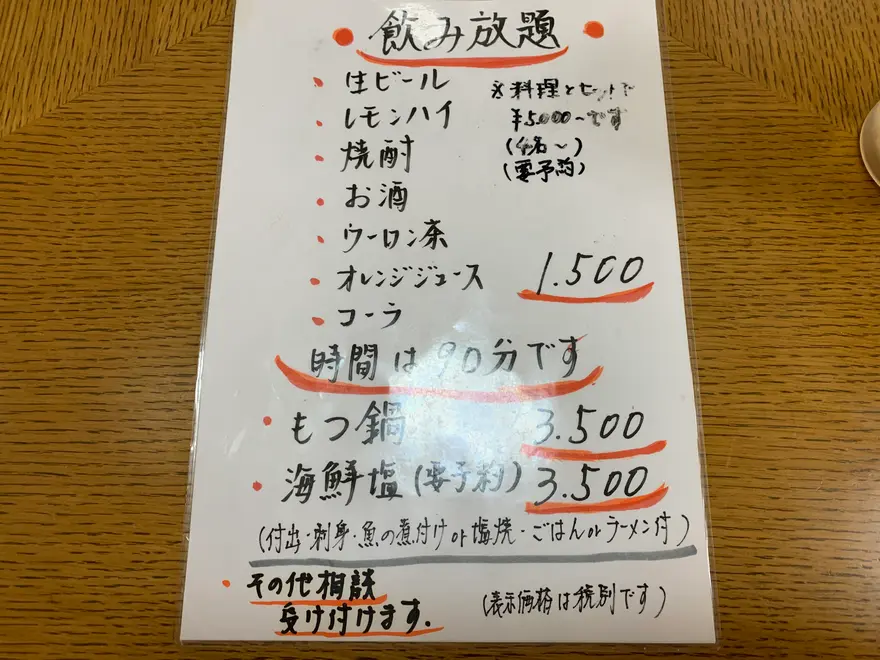 飲み放題
・生ビール
・レモンハイ
・焼酎
・お酒
・ウーロン茶
・オレンジジュース
・コーラ
※料理とセットで
¥5.000〜です
(4名〜)
(要予約)
1.500
時間は90分です
・もつ鍋 3.500
・海鮮塩(要予約) 3.500
(付出・刺身・魚の煮付けor塩焼・ごはんorラーメン付)
・その他相談
受け付けます.
(表示価格は税別です)